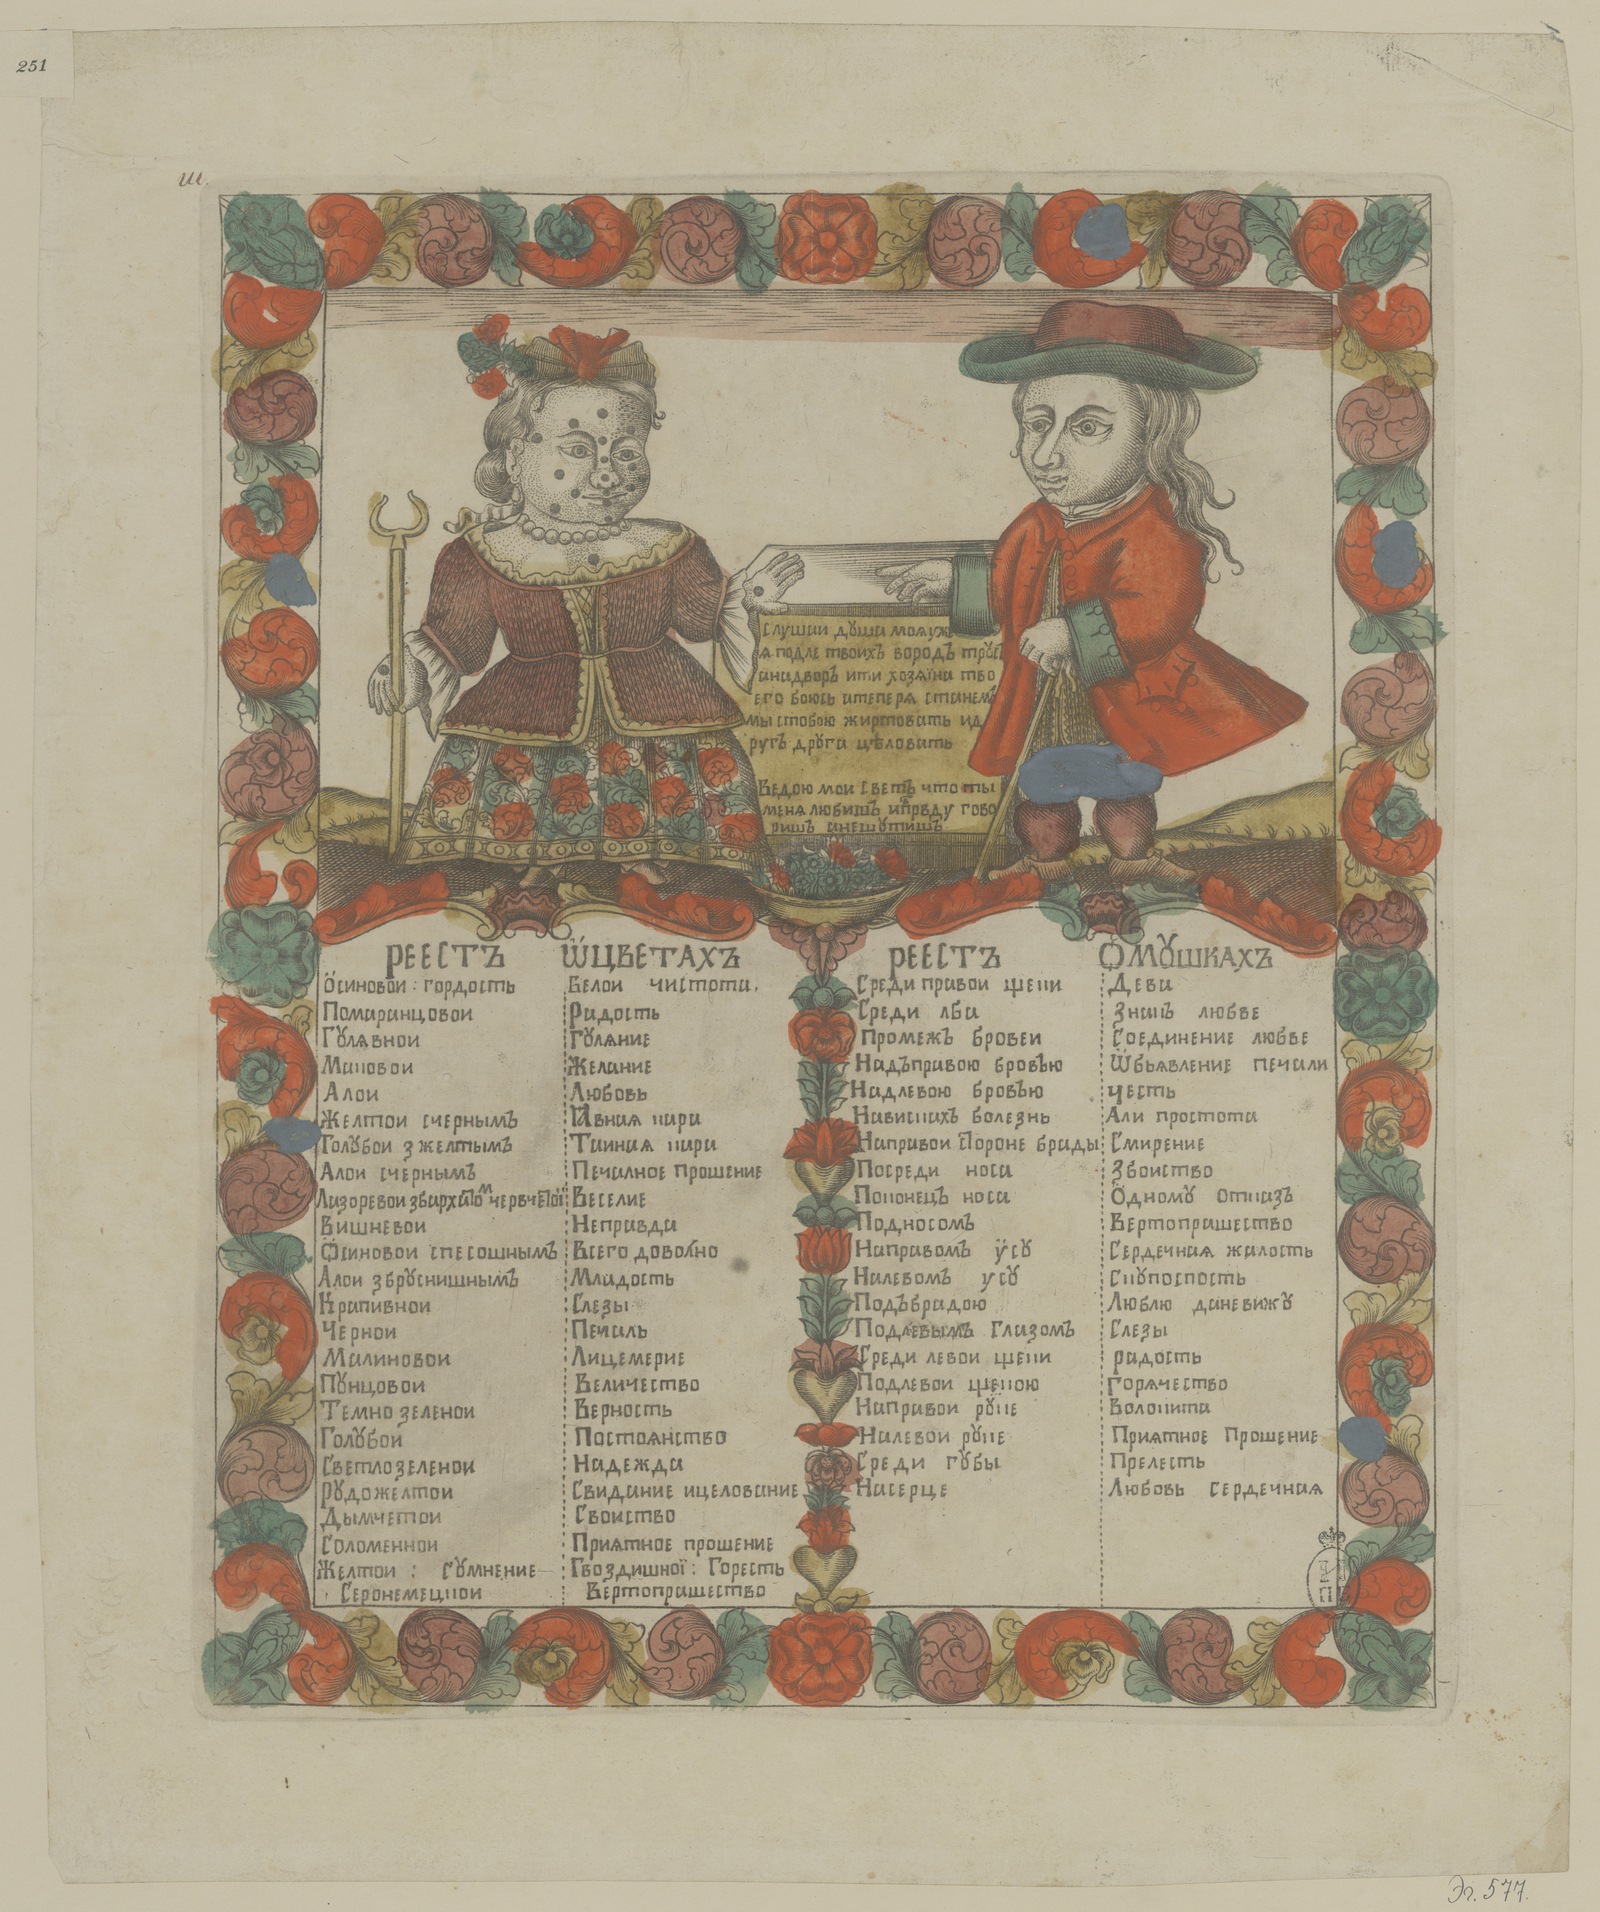 251
ш.
слушаи дꙋша моя
я подле твоихъ ворοдъ
инадворъ ити хозяїна тво
его боюсь итеперя станемъ
мы стобою жировать ид
ругъ дрꙋга цѣловать
Ведою мои светъ что ты
меня любишъ ипрвду гово
ришъ инешꙋтишъ
РЕЕСТЪ ѾЦВЕТАХЪ
Ѻсиновои: гордость Белои чистота.
Помаранцовои Радость
Гꙋлявнои Гꙋляние
Маковои Желание
Алои Любовь
Желтои счернымъ Явная кара
Голꙋбои зжелтымъ Таиная кара
Алои счернымъ Печалное прошение
Лазоревои Веселие
Вишневои Неправда
Ѻсиновои спесошнымъ Всего доволно
Алои збрꙋснишнымъ Младость
Крапивнои Слезы
Чернои Печаль
Малиновои Лицемерие
Пꙋнцовои Величество
Темно зеленои Верность
Голꙋбои Постоянство
Светлозеленои Надежда
Рꙋдожелтои Свидание ицелование
Дымчетои Своиство
Соломеннои Приятное прошение
Желтои: Сꙋмнение Гвоздишної: Горесть
Серонемецкои Вертопрашество
РЕЕСТЪ ѺМꙊШКАХЪ
Среди правои щеки Дева
Среди лба Знакъ любве
Промежъ бровеи Соединение любве
Надъправою бровью Ѿбьявление печали
Надлевою бровью честь
Навискахъ болезнь Али простота
Направои стороне брады Смирение
Посреди носа Збоиство
Поконецъ носа Ѻдномꙋ отказъ
Подносомъ Вертопрашество
Направомъ ꙋсꙋ Сердечная жалость
Налевомъ усꙋ Скꙋпоспость
Подъбрадою Люблю даневижꙋ
Подлевымъ глазомъ Слезы
Среди левои щеки радость
Подлевои щекою горячество
Направои рꙋке Волокита
Налевои рꙋке Приятное Прошение
Среди гꙋбы Прелесть
Насерце Любовь сердечная
Эл. 577.